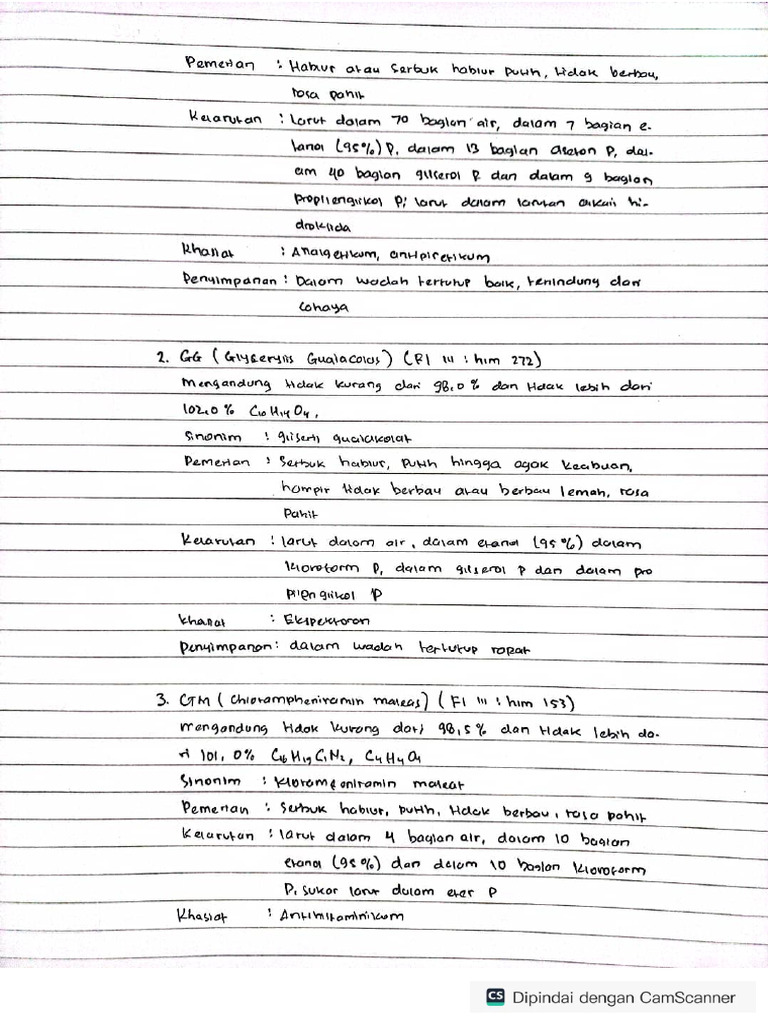 Pemerian : Hablur atau serbuk hablur putih, tidak berbau,
rasa pahit
Kelarutan : Larut dalam 70 bagian air, dalam 7 bagian e-
tanol (95%) P, dalam 13 bagian aseton P, dal-
am 40 bagian gliserol P dan dalam 9 bagian
propilenglikol P; larut dalam larutan alkali hi-
droksida
Khasiat : Analgetikum, antipiretikum
Penyimpanan : Dalam wadah tertutup baik, terlindung dari
cahaya
2. GG (Glycerylis Guaiacolas) (FI III : hlm 272)
Mengandung tidak kurang dari 98,0 % dan tidak lebih dari
102,0 % C10 H14 O4,
Sinonim : gliseril guaiakolat
Pemerian : Serbuk hablur, putih hingga agak keabuan,
hampir tidak berbau atau berbau lemah, rasa
Pahit
Kelarutan : larut dalam air, dalam etanol (95%) dalam
kloroform P, dalam gliserol P dan dalam pro
pilenglikol P
Khasiat : Ekspektoran
Penyimpanan : dalam wadah tertutup rapat
3. CTM (Chlorampheniramin maleas) (FI III : hlm 153)
Mengandung tidak kurang dari 98,5% dan tidak lebih da-
ri 101,0% C16 H19 C1N2, C4H4O4
Sinonim : Kloramfeniramin maleat
Pemerian : Serbuk hablur, putih, tidak berbau, rasa pahit
Kelarutan : larut dalam 4 bagian air, dalam 10 bagian
etanol (95%) dan dalam 10 bagian kloroform
P, sukar larut dalam eter P
Khasiat : Antihistaminikum
CS Dipindai dengan CamScanner